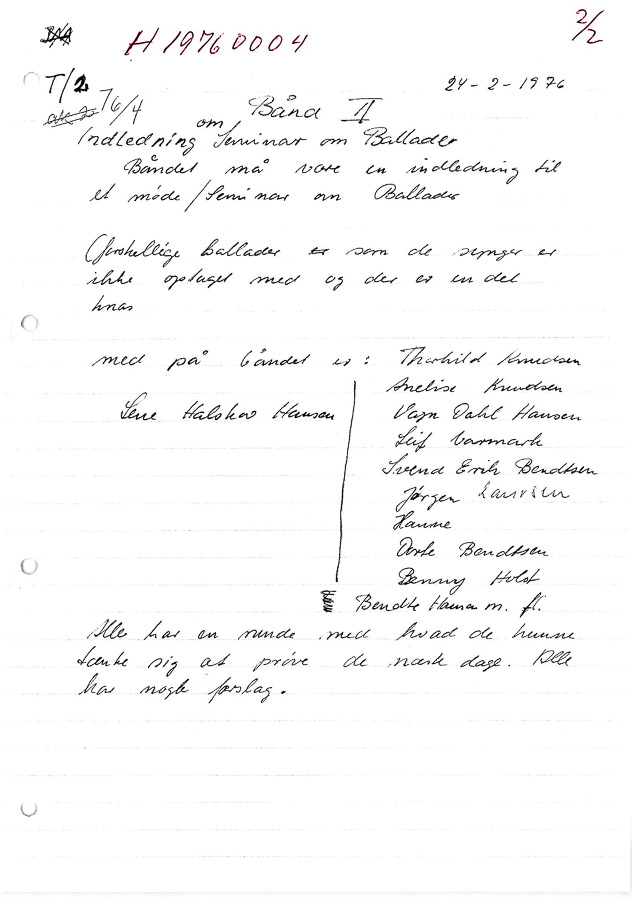 H 19760004
2/2
T/2
76/4
24-2-1976
Bånd II
Indledning om Seminar om Ballader
Båndet må være en indledning til
et møde/Seminar om Ballader
(forskellige ballader som de synger er
ikke optaget med og der er en del
knas
med på båndet er: Thorkild Knudsen
Anelise Knudsen
Lene Halskov Hansen
Vagn Dahl Hansen
Leif Varmark
Svend Erik Bendtsen
Jørgen Laursen
Hanne
Dorte Bendtsen
Benny Holst
Bendte Hansen m. fl.
Alle har en runde med hvad de kunne
tænke sig at prøve de næste dage. Alle
har nogle forslag.